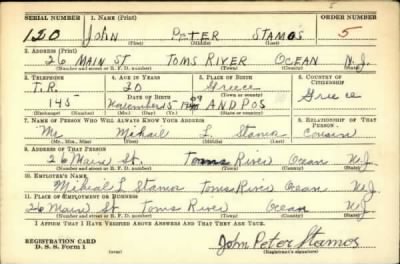 SERIAL NUMBER 1. NAME (Print) ORDER NUMBER
120 John PETER STAMOS 5
(First) (Middle) (Last)
2. ADDRESS (Print)
26 MAIN ST TOMS RIVER OCEAN N.J.
(Number and street or R. F. D. number) (Town) (County) (State)
3. TELEPHONE 4. AGE IN YEARS 5. PLACE OF BIRTH 6. COUNTRY OF CITIZENSHIP
T.R. 20 Greece Greece
DATE OF BIRTH (Town or county)
145 November 15 ANDPOS
(Exchange) (Number) (Mo.) (Day) (Yr.) (State or country)
7. NAME OF PERSON WHO WILL ALWAYS KNOW YOUR ADDRESS 8. RELATIONSHIP OF THAT PERSON
Mr Mihail L. Stamos Cousin
(Mr., Mrs., Miss) (First) (Middle) (Last)
9. ADDRESS OF THAT PERSON
26 Main St. Toms River Ocean N.J.
(Number and street or R. F. D. number) (Town) (County) (State)
10. EMPLOYER'S NAME
Miheal L Stamos Toms River Ocean N.J.
11. PLACE OF EMPLOYMENT OR BUSINESS
26 Main St Toms River Ocean N.J.
(Number and street or R. F. D. number) (Town) (County) (State)
I AFFIRM THAT I HAVE VERIFIED ABOVE ANSWERS AND THAT THEY ARE TRUE.
REGISTRATION CARD
D. S. S. Form 1 (over) John Peter Stamos
(Registrant's signature)